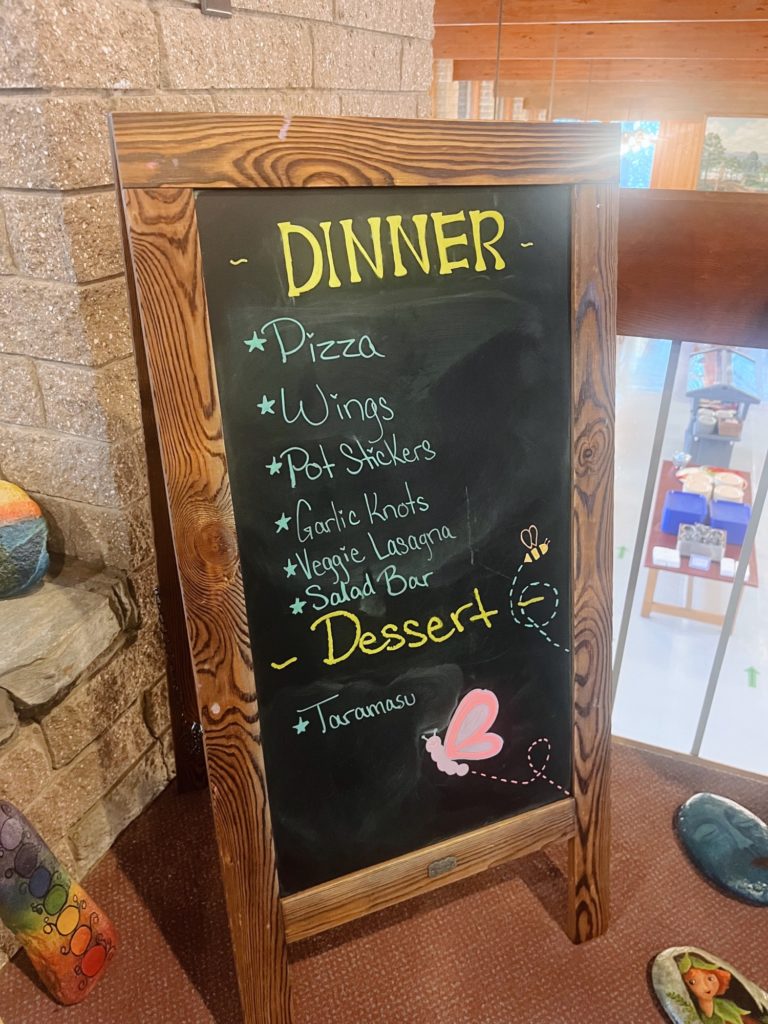 - DINNER -
★Pizza
★Wings
★Pot Stickers
★Garlic Knots
★Veggie Lasagna
★Salad Bar
- Dessert -
★Taramasu